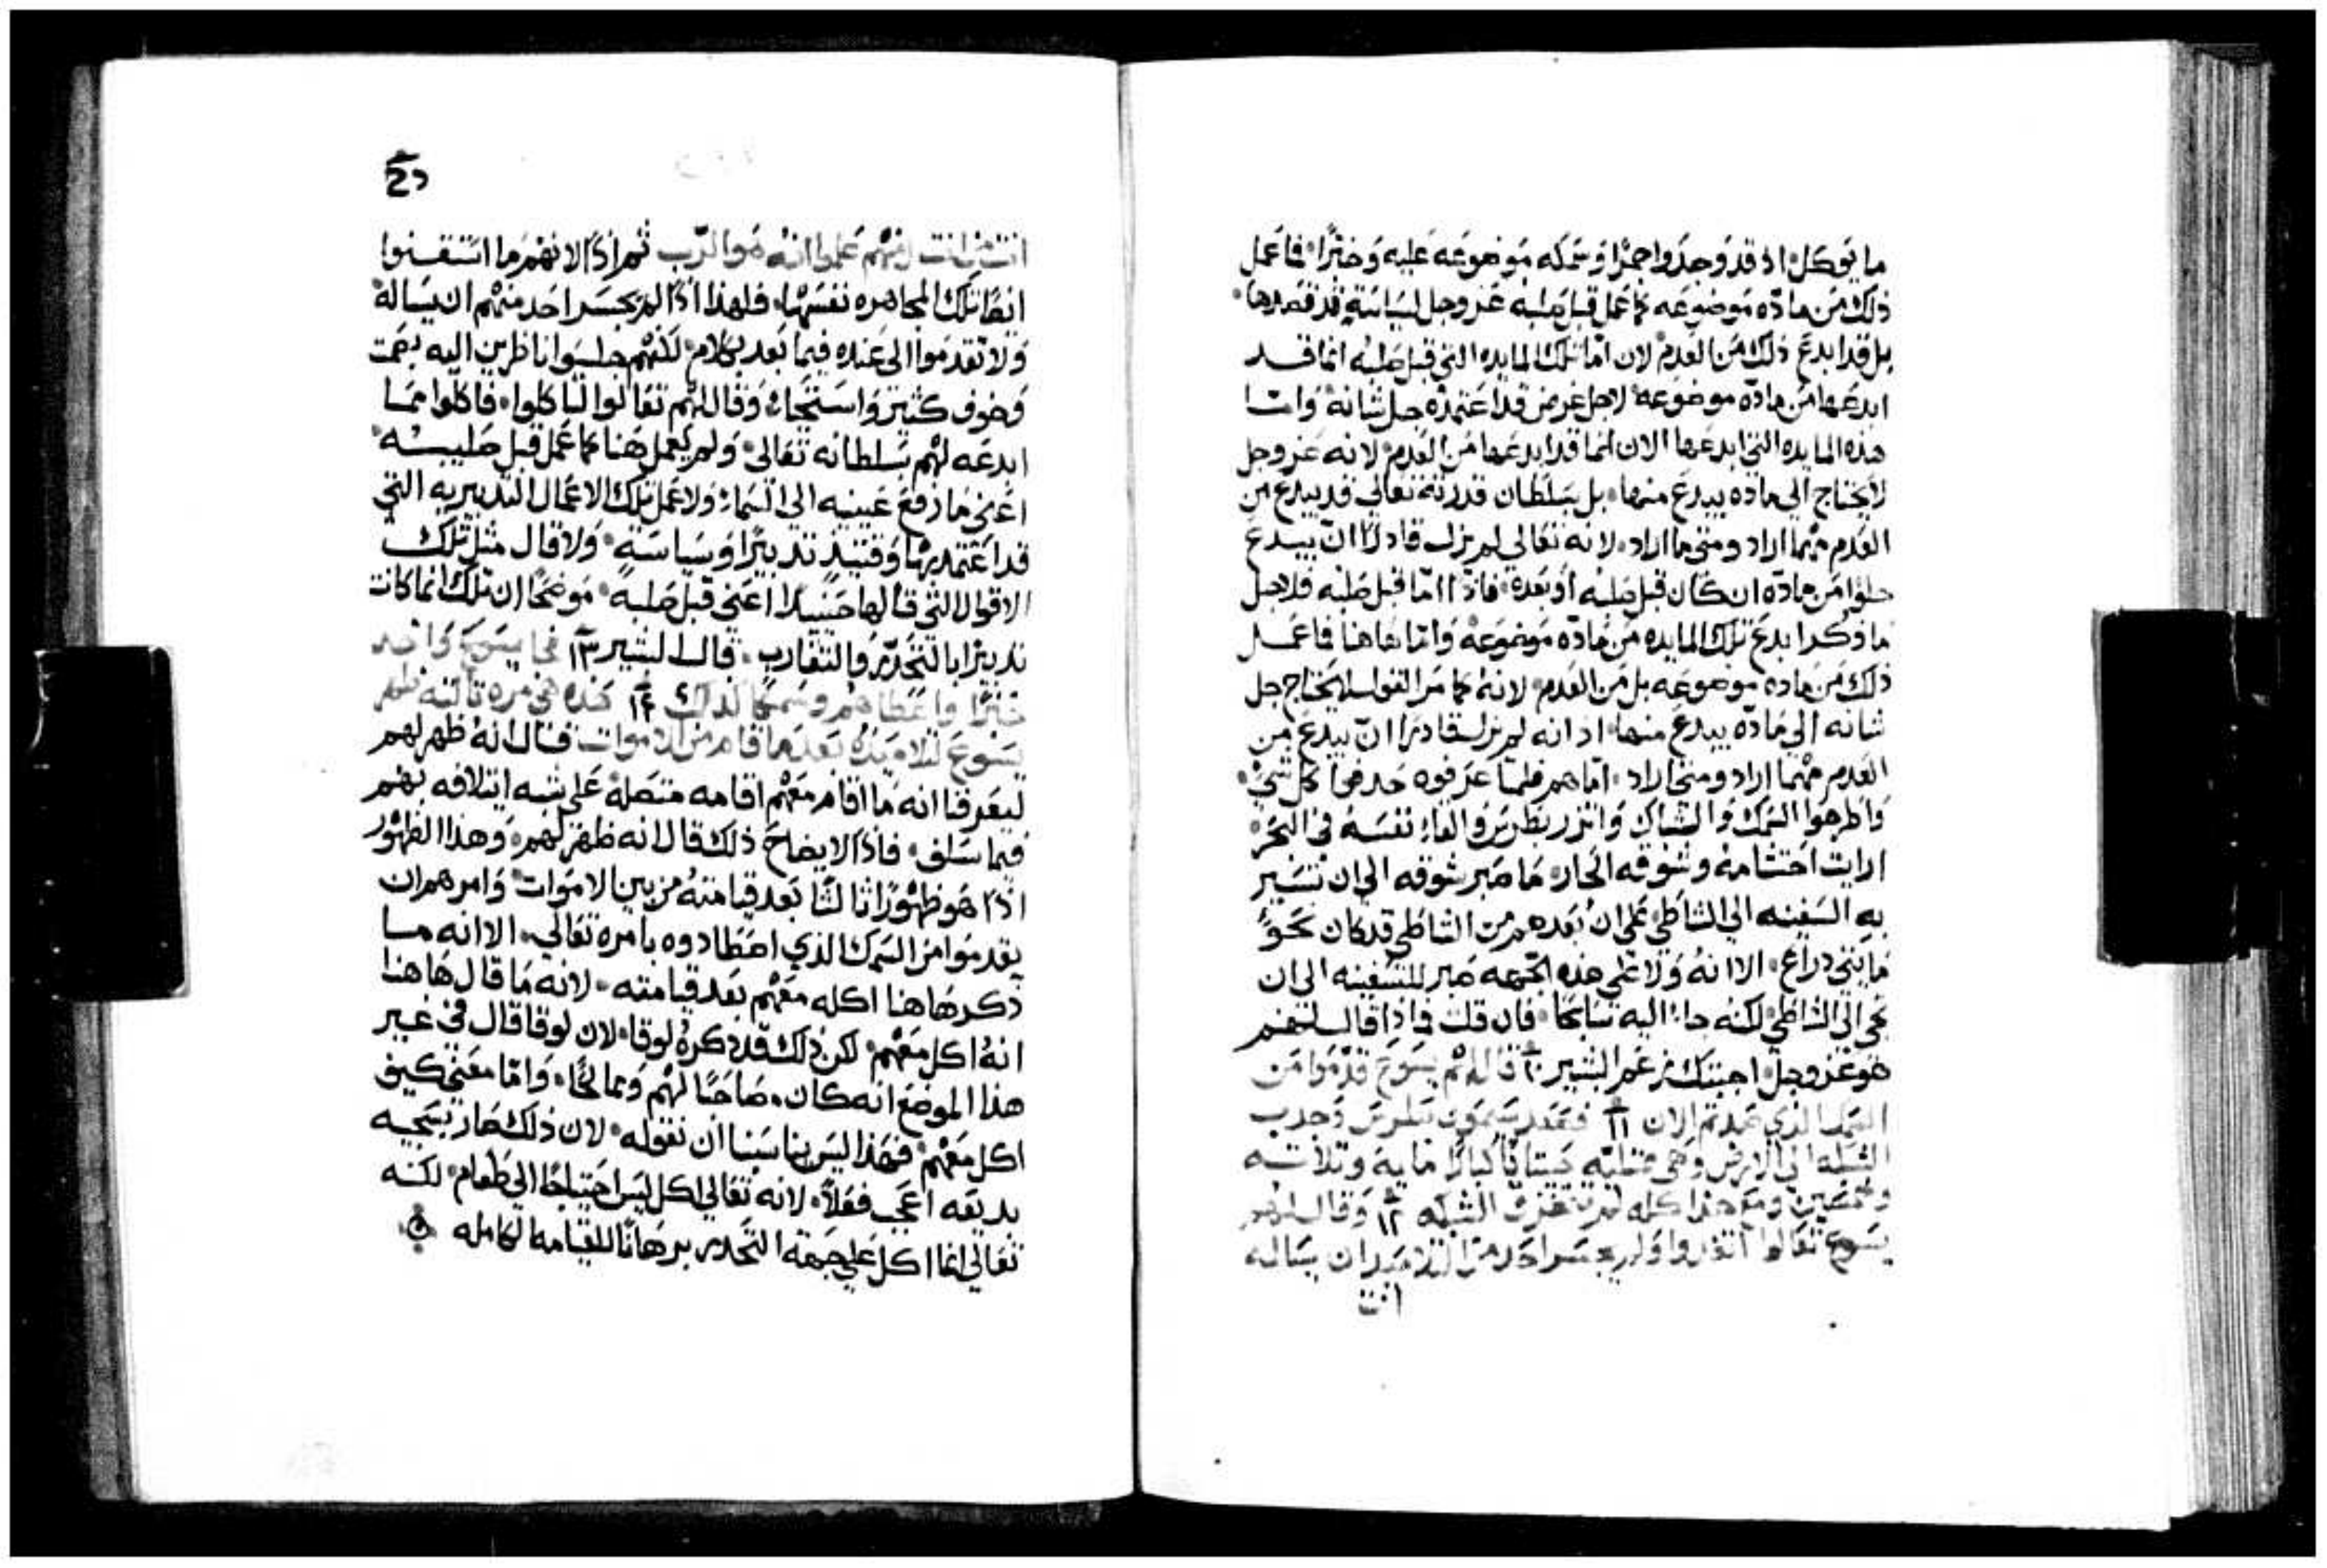 ما يوكل اذ قد وجدوا جمرًا وسمكه موضوعه عليه وخبزًا فما عمل
ذلك من مادّه موضوعه كما عمل قبل صلبه عز وجل لسياسةٍ قد قصدها
بل قد ابدع ذلك من العدم لان امّا تلك المايده التي قبل صلبه انما قد
ابدعها من مادّه موضوعه لاجل غرض قد اعتمده جل شانه وامّا
هذه المايده التي ابدعها الان انما قد ابدعها من العدم لانه عز وجل
لا يحتاج الي ماده يبدع منها بل بسلطان قدرته تعالي قد يبدع من
العدم مهما اراد ومتي ما اراد لانه تعالي لم يزل قادرًا ان يبدع
خلوا من مادّه ان كان قبل صلبه او بعده فاذًا امّا قبل صلبه فلاجل
ما ذكر ابدع تلك المايده من مادّه موضوعه وامّا هاهنا فما عمل
ذلك من ماده موضوعه بل من العدم لانه كما مر القول لا يحتاج جل
شانه الي مادّه يبدع منها اذ انه لم يزل قادرًا ان يبدع من
العدم مهما اراد ومتي اراد امّا هم فلمّا عرفوه حذفوا كل شيٍ
واطرحوا السمك والشباك واتزر بطرس والقا نفسه في البحر
ارايت احتشامه وشوقه الحار ما صبر شوقه الي ان تسير
به السفينه الي الشاطي علي ان بعدهم من الشاطي قد كان نحوً
مايتي دراع الا انه ولا علي هذه الجهه صبر للسفينه الي ان
تجي الي الشاطي لكنه جاء اليه سابحًا فان قلت فماذا قال لهم
هو عز وجل اجبتك نعم البشير ١٠ قال لهم يسوع قدّموا من
السمك الذي صدتم الان ١١ فصعد سمعون بطرس وجذب
الشبكه الي الارض وهي ممتليه حيتانًا كبارًا مايه وثلاثه
وخمسين ومع هذا كله لم تتخرق الشبكه ١٢ وقال لهم
يسوع تعالوا اتغدوا ولم يجسر احد من التلاميذ ان يساله
انت
انت من انت لانهم علموا انه هو الرّب ثم اذًا لانهم ما استقنوا
ايضًا تلك المجاهره نفسها فلهذا اذًا لم يجسر احد منهم ان يساله
ولا تقدموا الي عنده فيما بعد بكلام لكنهم جلسوا ناظرين اليه بصمت
وخوف كثير واستحياء وقال لهم تعالوا لتاكلوا فاكلوا ممّا
ابدعه لهم بسلطانه تعالي ولم يعمل هنا كما عمل قبل صليبه
اعني ما رفع عينيه الي السماء ولا عمل تلك الاعمال التدبيريه التي
قد اعتمد بها وقتيذٍ تدبيرًا وسياسةٍ ولا قال مثل تلك
الاقوال التي قالها حينيذًا اعني قبل صلبه موضحًا ان تلك انما كانت
تدبيرًا بالتحدّر والتقارب قال البشير ١٣ فجا يسوع واخد
خبزًا واعطاهم وسمكًا كذلك ١٤ هذه هي مره تالته ظهر
يسوع لتلاميذه بعدما قام من الاموات فقال انه ظهر لهم
ليعرفنا انه ما اقام معهم اقامه متصلة علي شبه ايتلافه بهم
فيما سلف فاذًا لايضاح ذلك قال انه ظهر لهم وهذا الظهور
اذًا هو ظهورًا ثالثًا بعد قيامته من بين الاموات وامرهم ان
يقدموا من السمك الذي اصطادوه بامره تعالي الا انه ما
ذكر هاهنا اكله معهم بعد قيامته لانه ما قال هاهنا
انه اكل معهم لكن ذلك قد ذكره لوقا لان لوقا قال في غير
هذا الموضع انه كان مصاحبًا لهم وممالحًا وامّا معني كيف
اكل معهم فهذا ليس يناسبنا ان نقوله لان ذلك صار بسجيه
بديعه اعجب فعلاً لانه تعالي اكل ليس احتياجًا الي طعام لكنه
تعالي انما اكل علي جهة التحدر برهانًا للقيامه الكامله